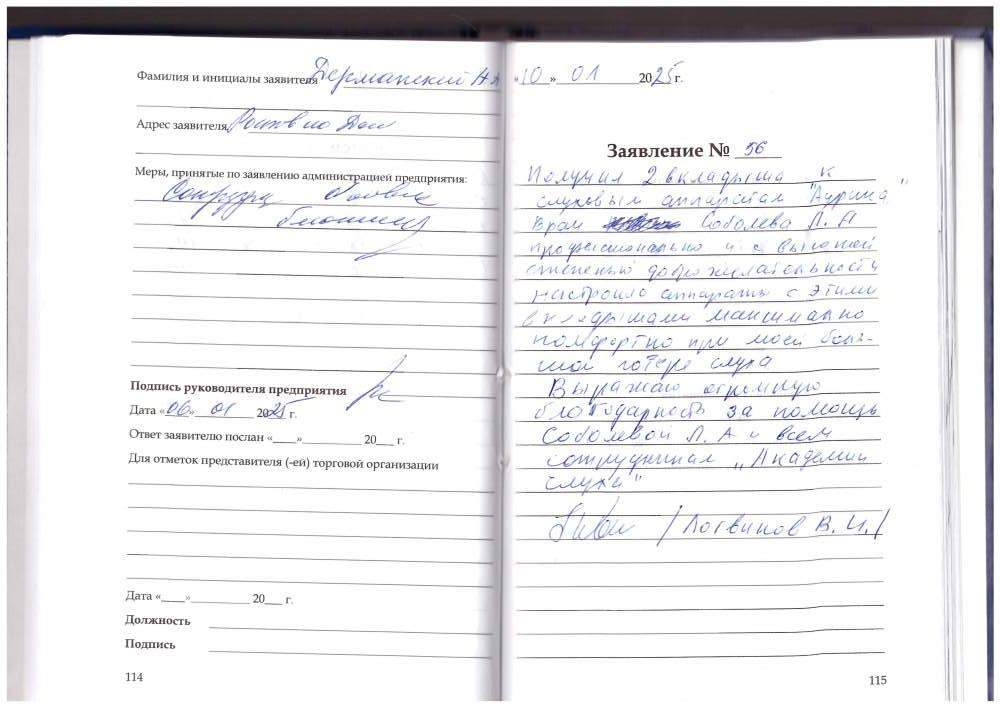 Фамилия и инициалы заявителя Германский Н.А
Адрес заявителя Ростов на Дон
Меры, принятые по заявлению администрацией предприятия:
Подпись руководителя предприятия
Дата «06» 01 2025 г.
Ответ заявителю послан «___»__________ 20___ г.
Для отметок представителя (-ей) торговой организации
Дата «____»__________ 20___ г.
Должность
Подпись
114
«10» 01 2025 г.
Заявление № 56
Получил 2 вкладыша к
слуховым аппаратам "Аурика"
Врач Соболева Л.А
профессионально и с высокой
степенью доброжелательности
настроила аппараты с этими
вкладышами максимально
комфортно при моей боль-
шой потере слуха
Выражаю огромную
благодарность за помощь
Соболевой Л.А и всем
сотрудникам „Академии
слуха"
/Логвинов В.И./
115